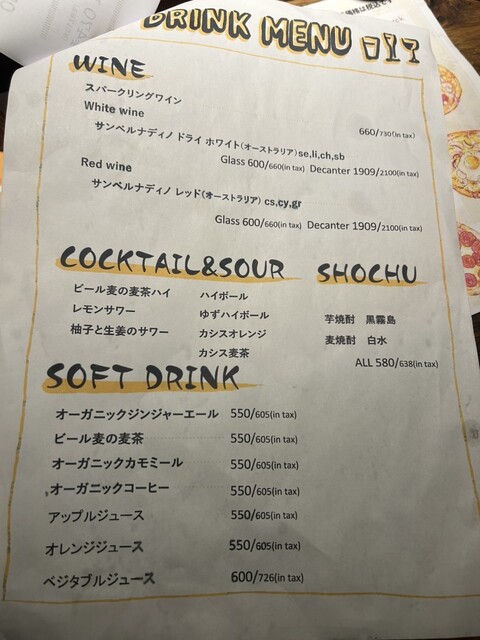 DRINK MENU
WINE
スパークリングワイン
660/730(in tax)
White wine
サンベルナディノ ドライ ホワイト(オーストラリア)se,li,ch,sb
Glass 600/660(in tax) Decanter 1909/2100(in tax)
Red wine
サンベルナディノ レッド(オーストラリア) cs,cy,gr
Glass 600/660(in tax) Decanter 1909/2100(in tax)
COCKTAIL&SOUR
ビール麦の麦茶ハイ
レモンサワー
柚子と生姜のサワー
ハイボール
ゆずハイボール
カシスオレンジ
カシス麦茶
SHOCHU
芋焼酎 黒霧島
麦焼酎 白水
ALL 580/638(in tax)
SOFT DRINK
オーガニックジンジャーエール 550/605(in tax)
ビール麦の麦茶 550/605(in tax)
オーガニックカモミール 550/605(in tax)
オーガニックコーヒー 550/605(in tax)
アップルジュース 550/605(in tax)
オレンジジュース 550/605(in tax)
ベジタブルジュース 600/726(in tax)